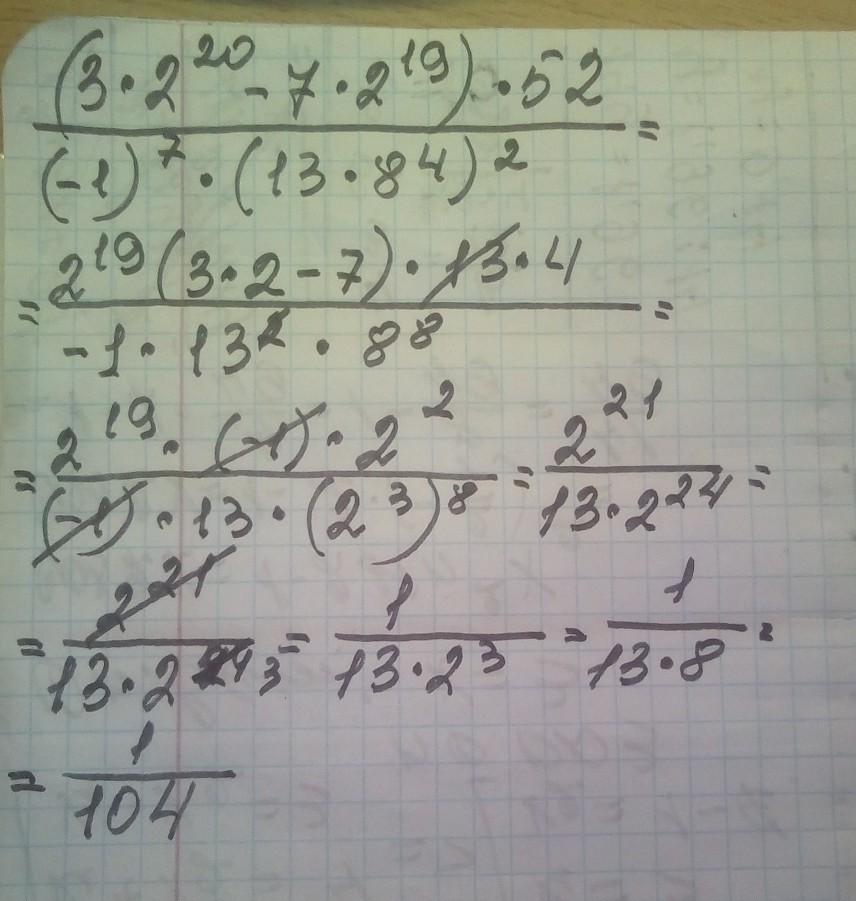 (3·2²⁰-7·2¹⁹)·52
=
(-1)⁷·(13·8⁴)²
2¹⁹(3·2-7)·13·4
= =
-1·13²·8⁸
2¹⁹·(-1)·2² 2²¹
= = =
(-1)·13·(2³)⁸ 13·2²⁴
2²¹ 1 1
= = = =
13·2²⁴ 3 13·2³ 13·8
1
=
104